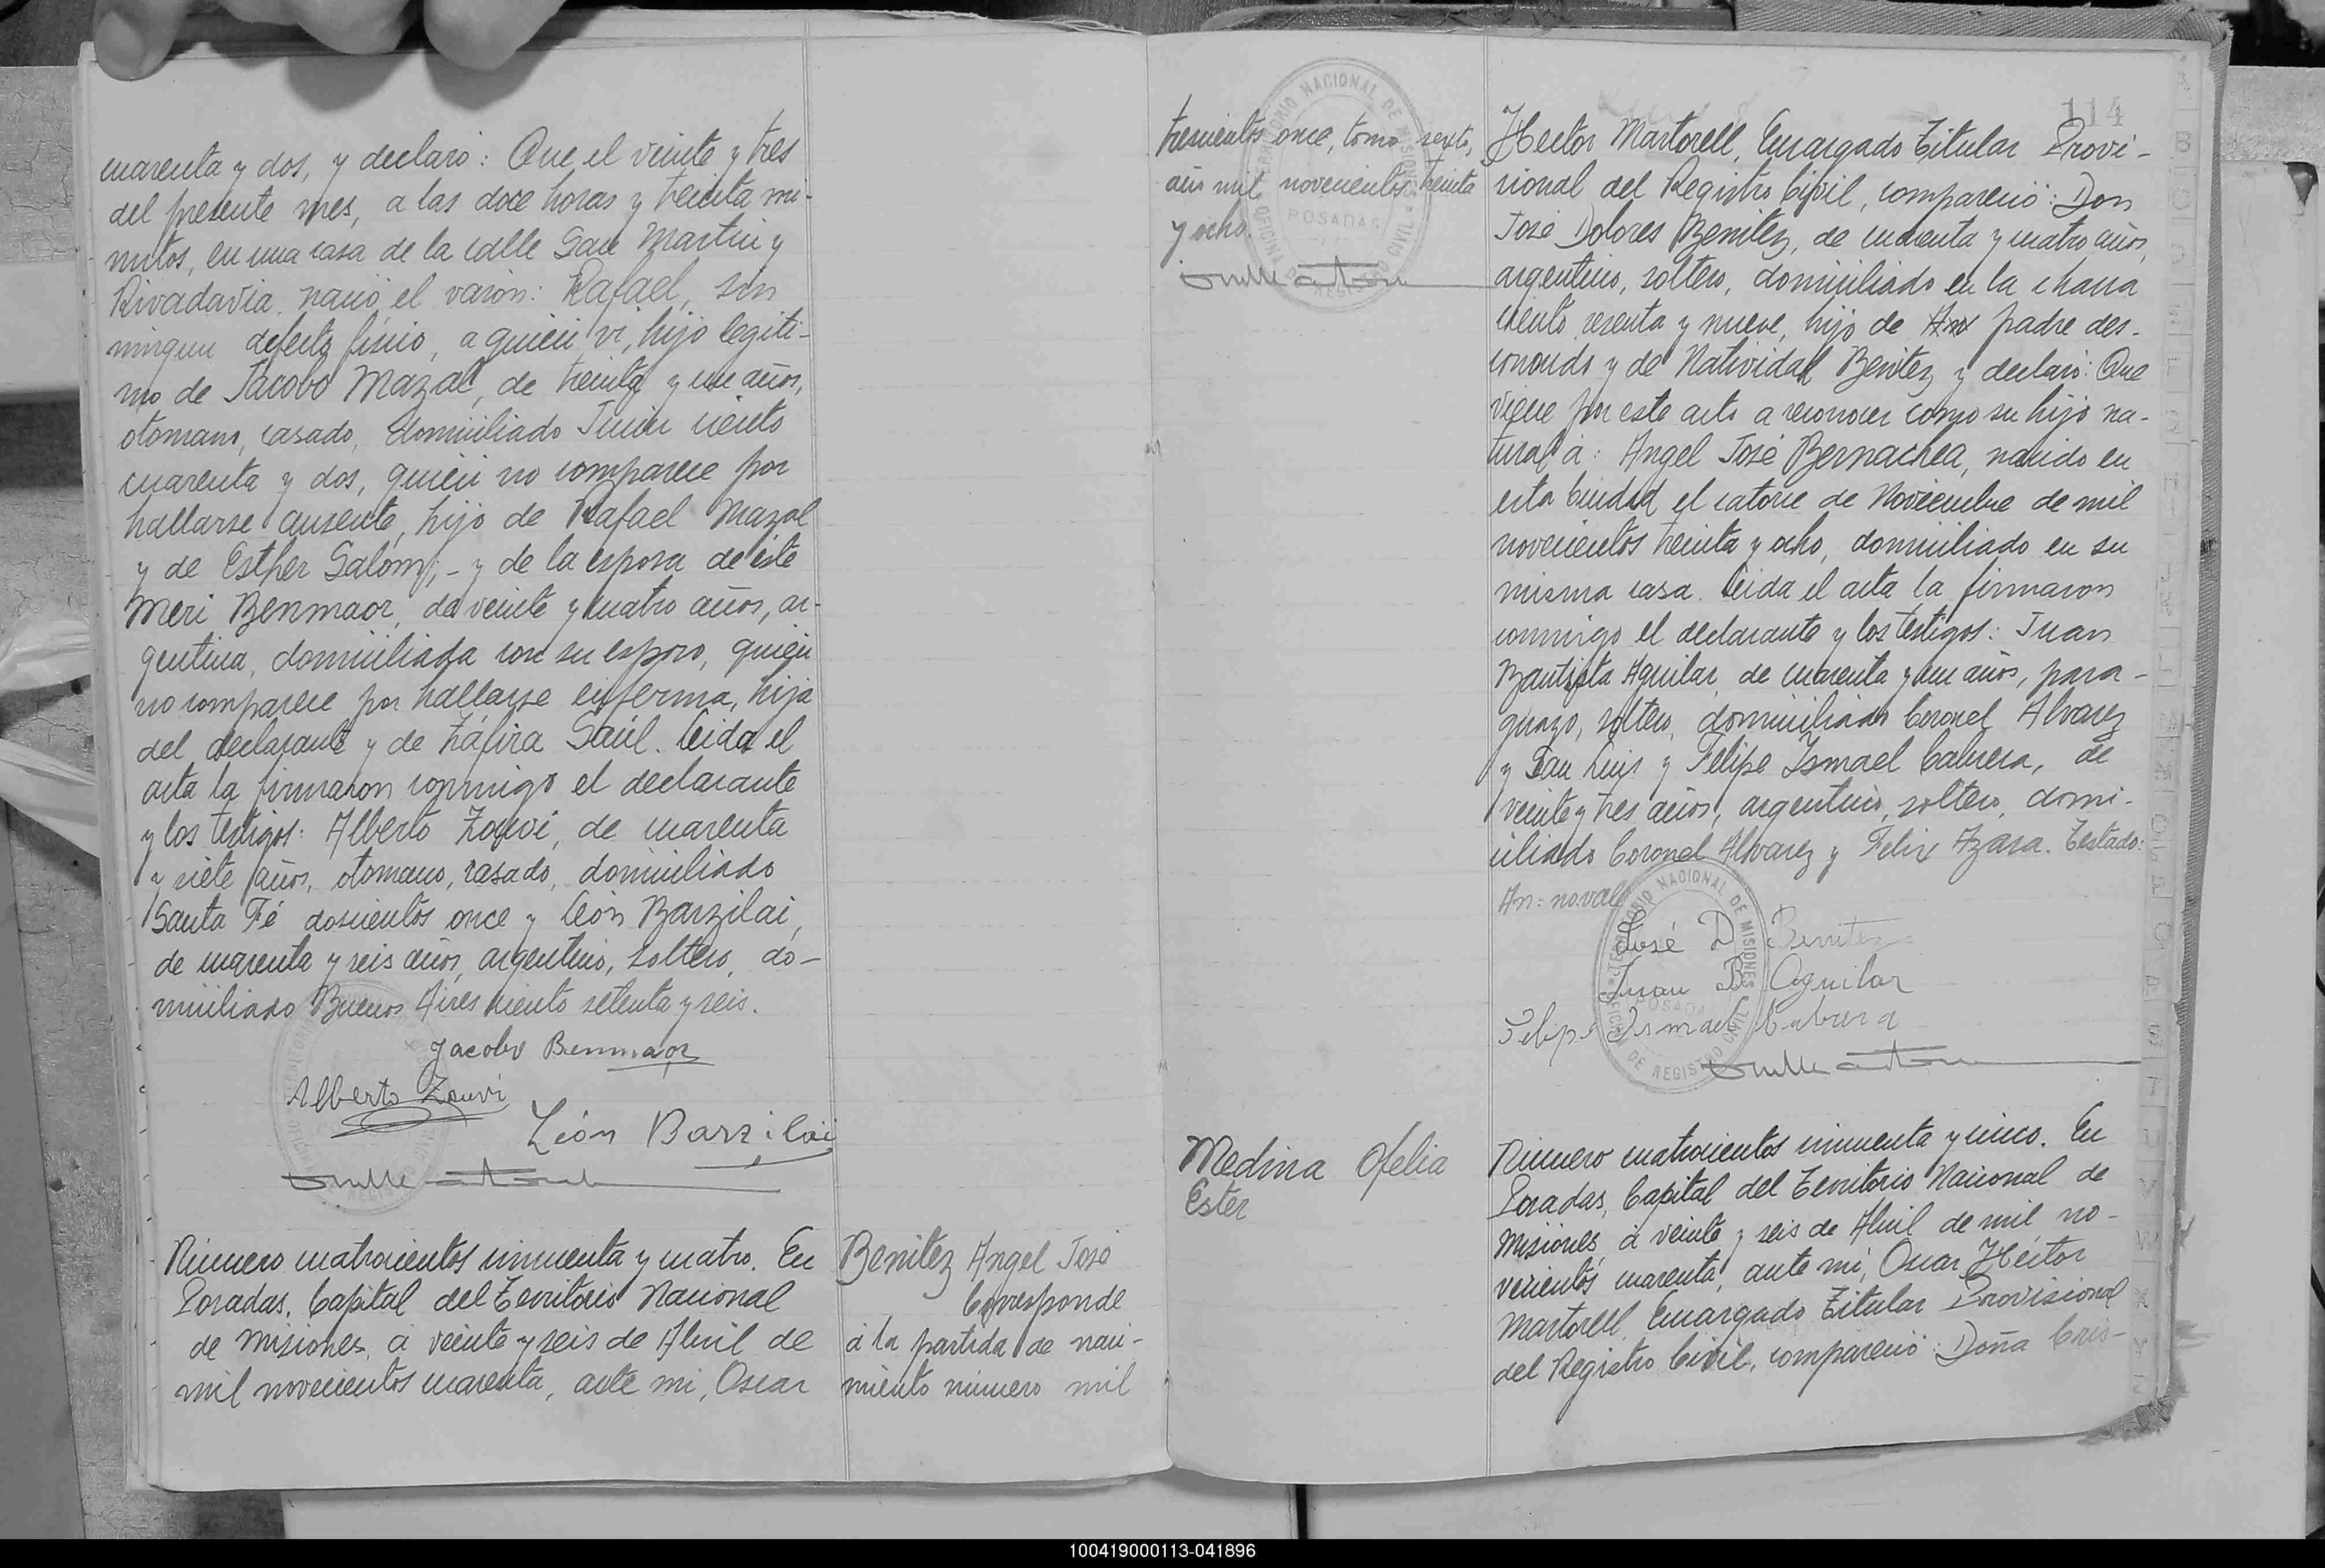 cuarenta y dos, y declaró: Que el veinte y tres
del presente mes, a las doce horas y treinta mi-
nutos, en una casa de la calle San Martin y
Rivadavia nació el varón: Rafael, sin
ningun defecto físico, a quien vi, hijo legiti-
mo de Jacobo Mazal, de treinta y un años,
otomano, casado, domiciliado Junin ciento
cuarenta y dos, quien no comparece por
hallarse ausente, hijo de Rafael Mazal
y de Esther Salom; - y de la esposa de éste
Meri Benmaor, de veinte y cuatro años, ar-
gentina, domiciliada con su esposo, quien
no comparece por hallarse enferma, hija
del declarante y de Záfira Saúl. Leida el
acta la firmaron conmigo el declarante
y los testigos: Alberto Zouvi, de cuarenta
y siete años, otomano, casado, domiciliado
Santa Fé doscientos once y León Barzilai,
de cuarenta y seis años, argentino, soltero, do-
miciliado Buenos Aires ciento setenta y seis.
Jacobo Benmaor
Alberto Zouvi
León Barzilai
Número cuatrocientos cincuenta y cuatro. En
Posadas, Capital del Territorio Nacional
de Misiones, á veinte y seis de Abril de
mil novecientos cuarenta, ante mi, Oscar
Benitez Angel José
Corresponde
á la partida de naci-
miento número mil
trescientos once, tomo sexto,
año mil novecientos treinta
y ocho.
TERRITORIO NACIONAL DE MISIONES
POSADAS
OFICINA DE REGISTRO CIVIL
114
Hector Martorell, Encargado Titular Provi-
sional del Registro Civil, compareció: Don
José Dolores Benitez, de cuarenta y cuatro años,
argentino, soltero, domiciliado en la chacra
ciento sesenta y nueve, hijo de An padre des-
conocido y de Natividad Benitez y declaró: Que
viene por este acto a reconocer como su hijo na-
tural á: Angel José Bernachea, nacido en
esta Ciudad el catorce de Noviembre de mil
novecientos treinta y ocho, domiciliado en su
misma casa. Leida el acta la firmaron
conmigo el declarante y los testigos: Juan
Bautista Aguilar de cuarenta y un años, para-
guayo, soltero, domiciliado Coronel Alvarez
y San Luis y Felipe Ismael Cabrera, de
veinte y tres años, argentino, soltero, domi-
ciliado Coronel Alvarez y Felix Azara. Testado:
An: no vale
José D Benitez
Juan B Aguilar
Felipe Ismael Cabrera
TERRITORIO NACIONAL DE MISIONES
POSADAS
OFICINA DE REGISTRO CIVIL
Medina Ofelia
Ester
Número cuatrocientos cincuenta y cinco. En
Posadas, Capital del Territorio Nacional de
Misiones, á veinte y seis de Abril de mil no-
vecientos cuarenta, ante mi, Oscar Héctor
Martorell Encargado Titular Provisional
del Registro Civil, compareció: Doña Cris-
100419000113-041896